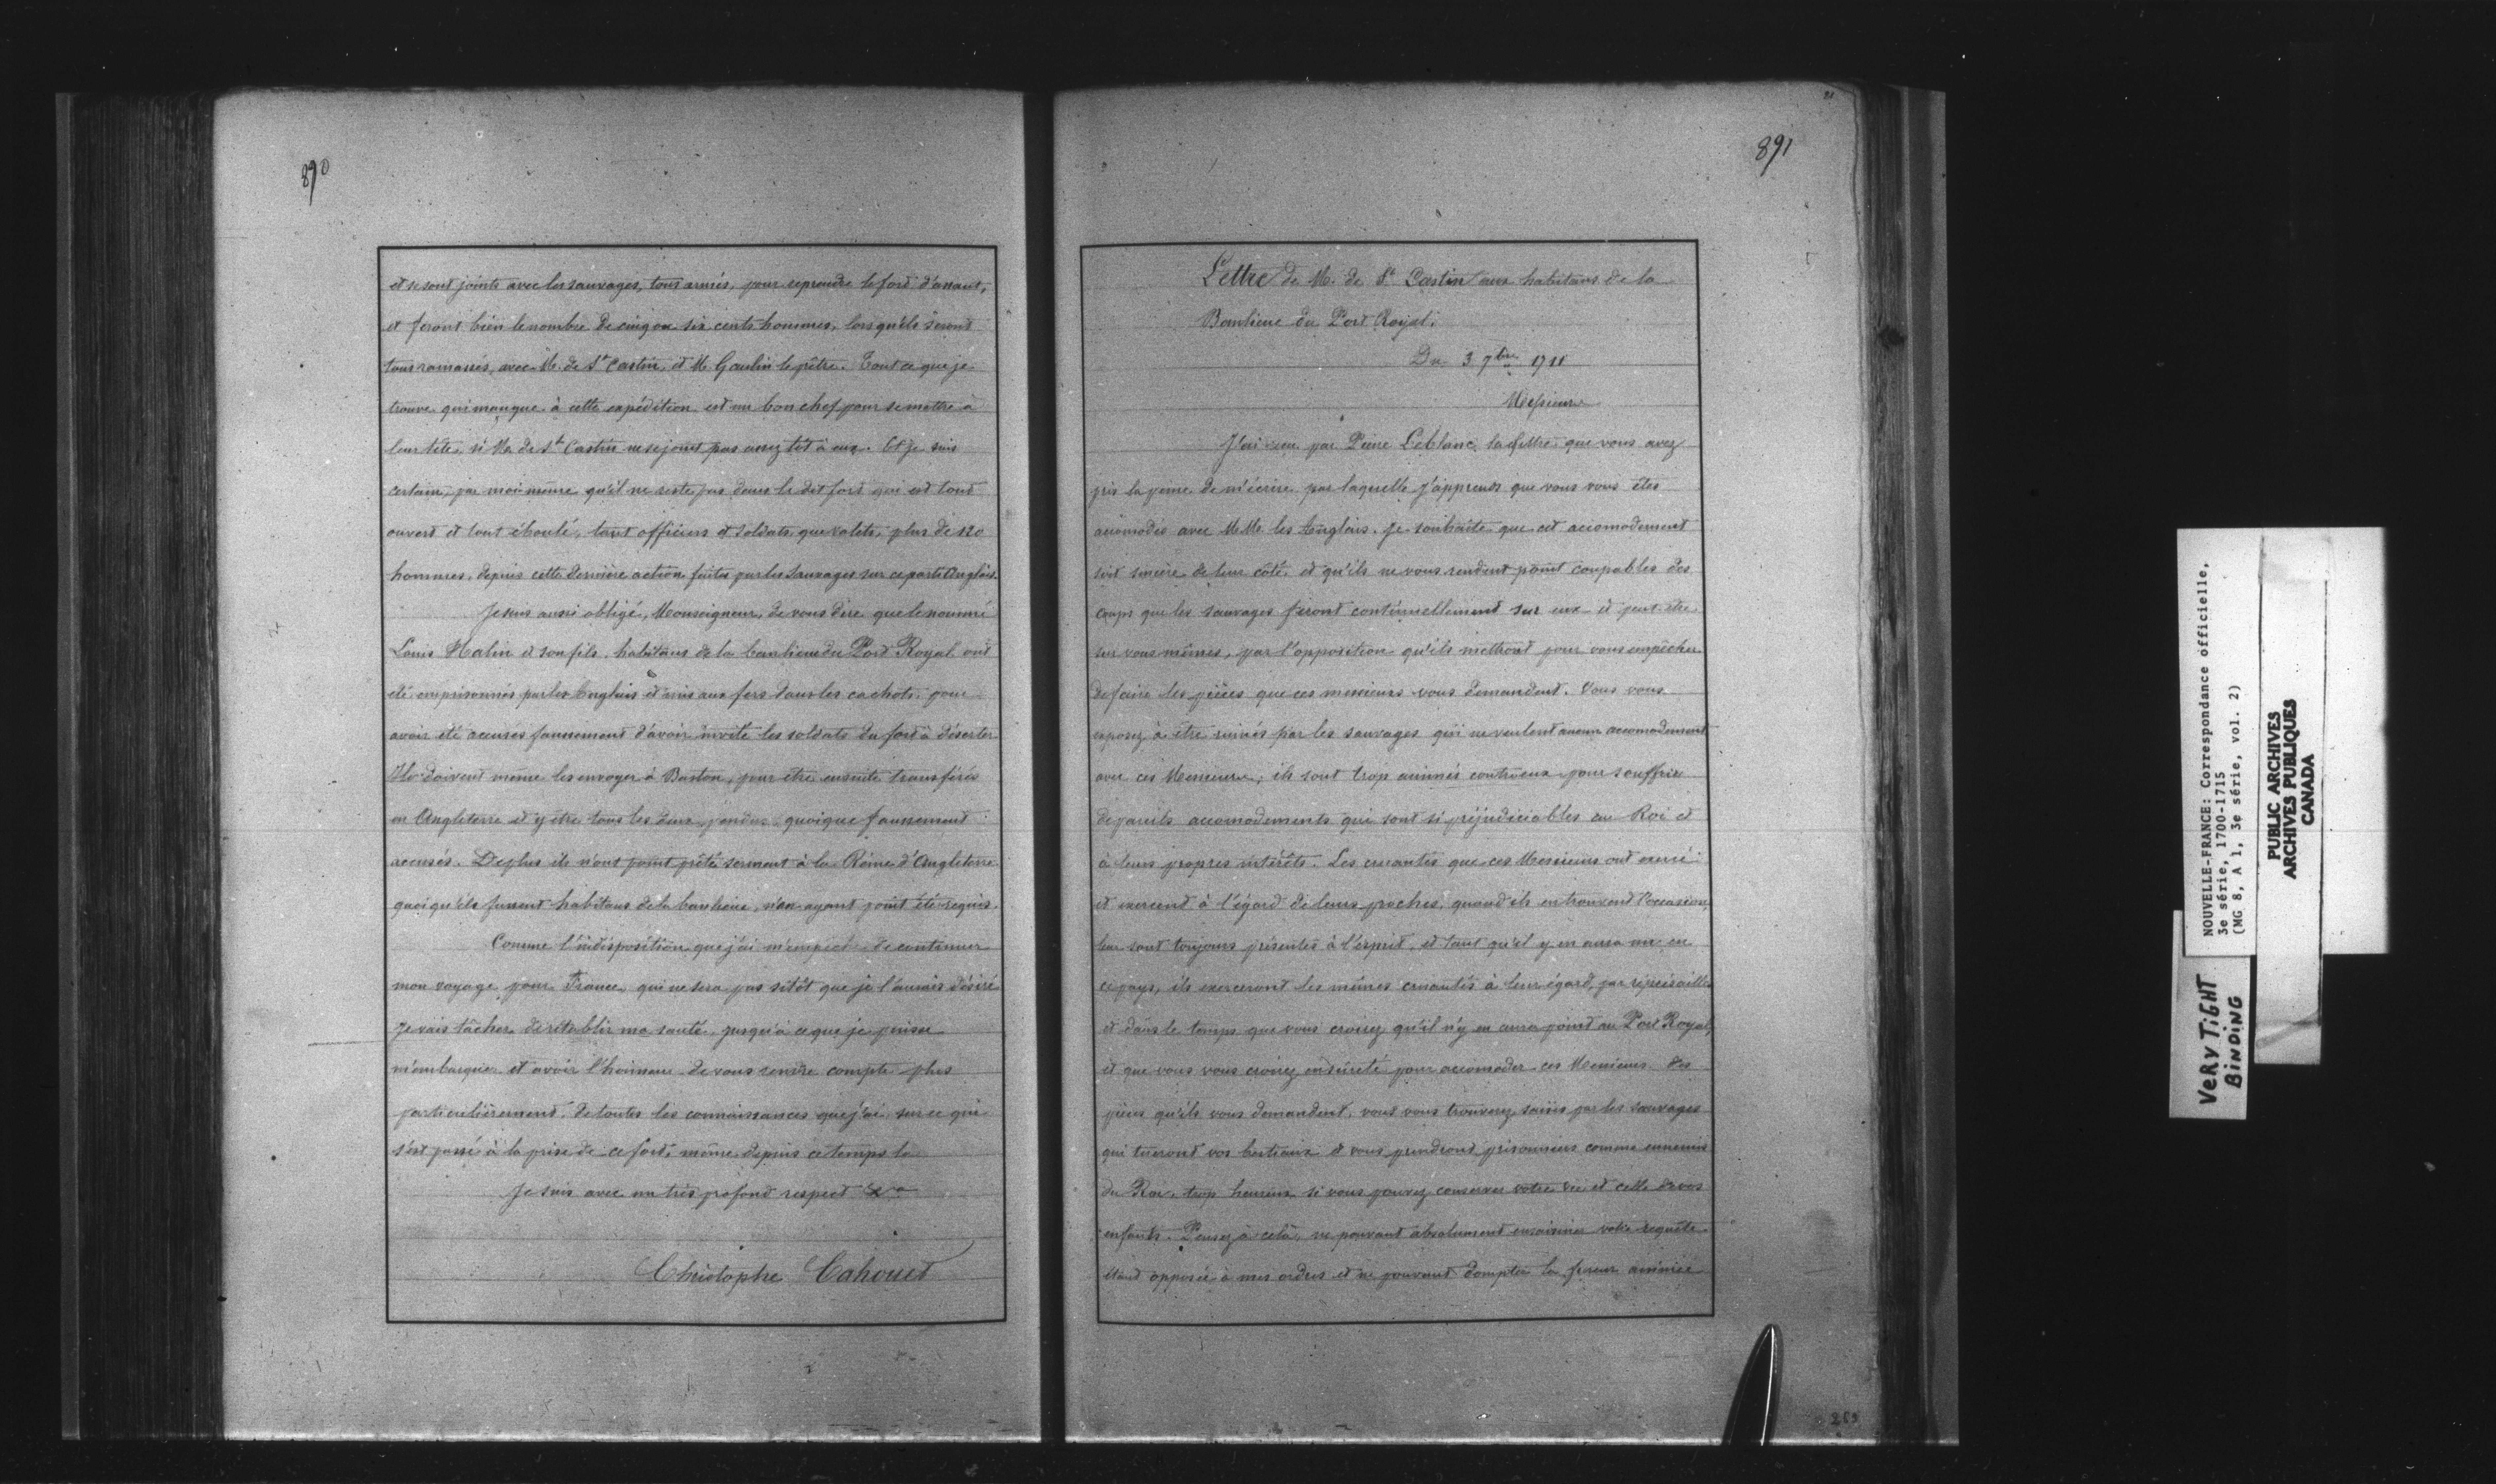 890
et se sont joints avec les sauvages, tous armés, pour reprendre le fort d'assaut,
et feront bien le nombre de cinq ou six cents hommes, lorsqu'ils seront
tous ramassés, avec M. de St Castin, et M. Gaulin le prêtre. Tout ce que je
trouve qui manque à cette expédition est un bon chef pour se mettre à
leur tête, si M. de St Castin ne se joint pas assez tôt à eux. Et je suis
certain, par moi même qu'il ne reste pas dans le dit fort qui est tout
ouvert et tout éboulé, tant officiers et soldats que valets, plus de 120
hommes, depuis cette dernière action faite par les Sauvages sur ce parti Anglais.
Je suis aussi obligé, Monseigneur, de vous dire que le nommé
Louis Halin et son fils, habitans de la banlieue du Port Royal ont
été emprisonnés par les Anglais et mis aux fers dans les cachots, pour
avoir été accusés faussement d'avoir invité les soldats du fort à déserter
Ils doivent même les envoyer à Baston, pour être ensuite transférés
en Angleterre et y être tous les deux pendus quoique faussement
accusés. De plus ils n'ont point prêté serment à la Reine d'Angleterre
quoiqu'ils fussent habitans de la banlieue, n'en ayant point été requis.
Comme l'indisposition que j'ai m'empêche de continuer
mon voyage pour France, qui ne sera pas sitôt que je l'aurais désiré
Je vais tâcher de rétablir ma santé, jusqu'à ce que je puisse
m'embarquer et avoir l'honneur de vous rendre compte plus
particulièrement, de toutes les connaissances que j'ai sur ce qui
s'est passé à la prise de ce fort, même depuis ce temps là
Je suis avec un très profond respect &a
Christophe Cahouet
891
Lettre de M. de St Castin aux habitans de la
Banlieue du Port Royal.
Du 3 7bre 1711
Messieurs
J'ai reçu par Pierre Leblanc la lettre que vous avez
pris la peine de m'écrire par laquelle j'apprends que vous vous êtes
accomodés avec MM. les Anglais. Je souhaite que cet accomodement
soit sincère de leur côté, et qu'ils ne vous rendent point coupables des
coups que les sauvages feront continuellement sur eux et peut être
sur vous mêmes, par l'opposition qu'ils mettront pour vous empêcher
de faire les pièces que ces messieurs vous demandent. Vous vous
exposez à être ruinés par les sauvages qui ne veulent aucun accomodement
avec ces Messieurs; ils sont trop animés contre eux pour souffrir
de pareils accomodements qui sont si préjudiciables au Roi et
à leurs propres intérêts. Les cruautés que ces Messieurs ont exercé
et exercent à l'égard de leurs proches, quand ils en trouvent l'occasion,
leur sont toujours présentes à l'esprit, et tant qu'il y en aura un en
ce pays, ils exerceront les mêmes cruautés à leur égard, par représailles
et dans le temps que vous croirez qu'il n'y en aura point au Port Royal,
et que vous vous croirez en sûreté pour accomoder ces Messieurs des
pièces qu'ils vous demandent, vous vous trouverez saisis par les sauvages
qui tueront vos bestiaux & vous prendront prisonniers comme ennemis
du Roi, trop heureux si vous pouvez conserver votre vie et celle de vos
enfants. Pensez à celà, ne pouvant absolument votre requête
étant opposée à mes ordres et ne pouvant dompter la fureur animée
NOUVELLE-FRANCE: Correspondance officielle,
3e série, 1700-1715
(MG 8, A 1, 3e série, vol. 2)
PUBLIC ARCHIVES
ARCHIVES PUBLIQUES
CANADA
VERY TIGHT
BINDING